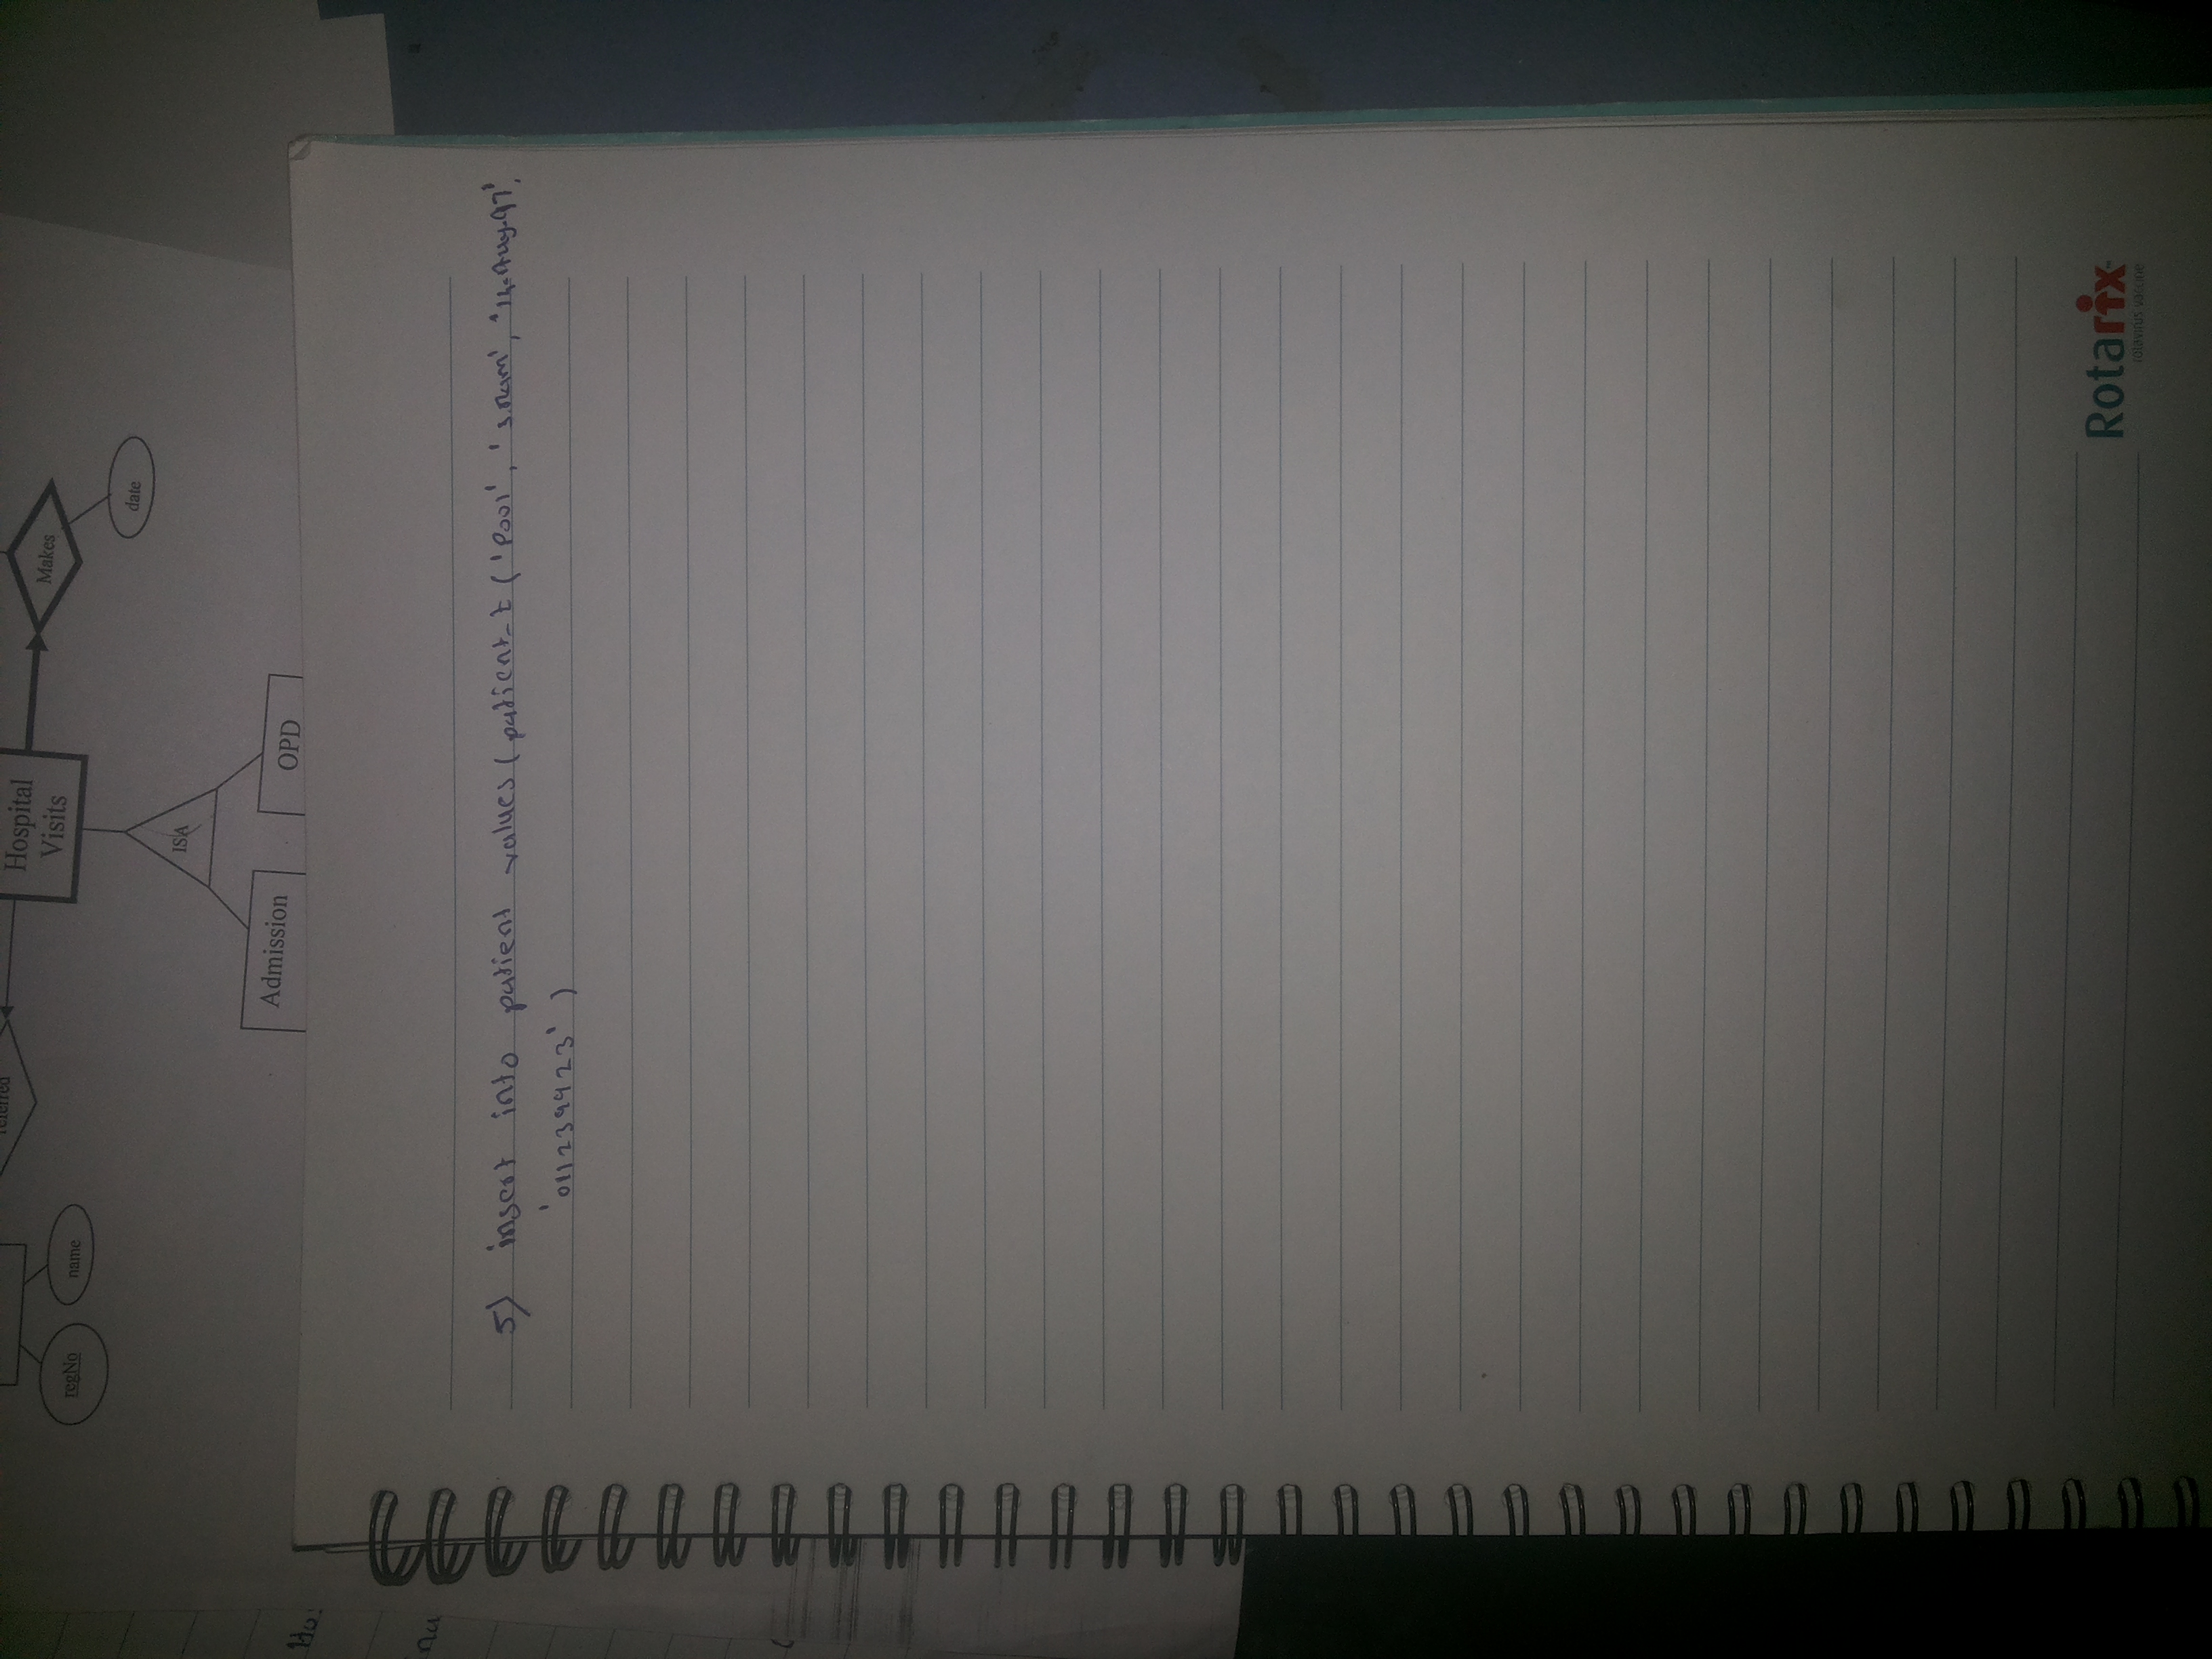 Hospital
Visits
Makes
regNo
name
date
ISA
Admission
OPD
5) insert into patient values (patient_t ('P001', 's.Ram', '14-Aug-97',
'011239923' )
Rotarix
rotavirus vaccine